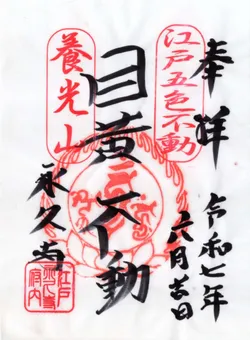 奉拝
令和七年
六月吉日
江戸五色不動
目黄不動
養光山
永久寺